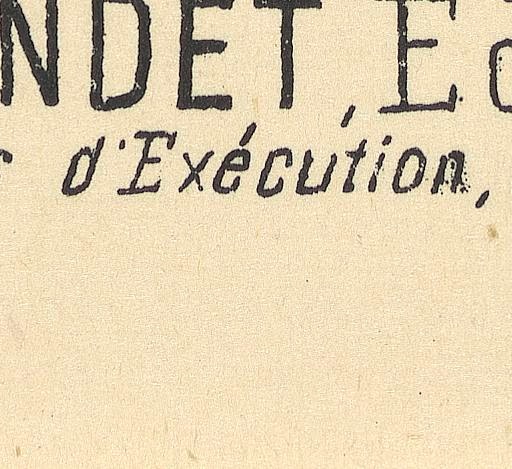 NDET, E
d'Exécution,